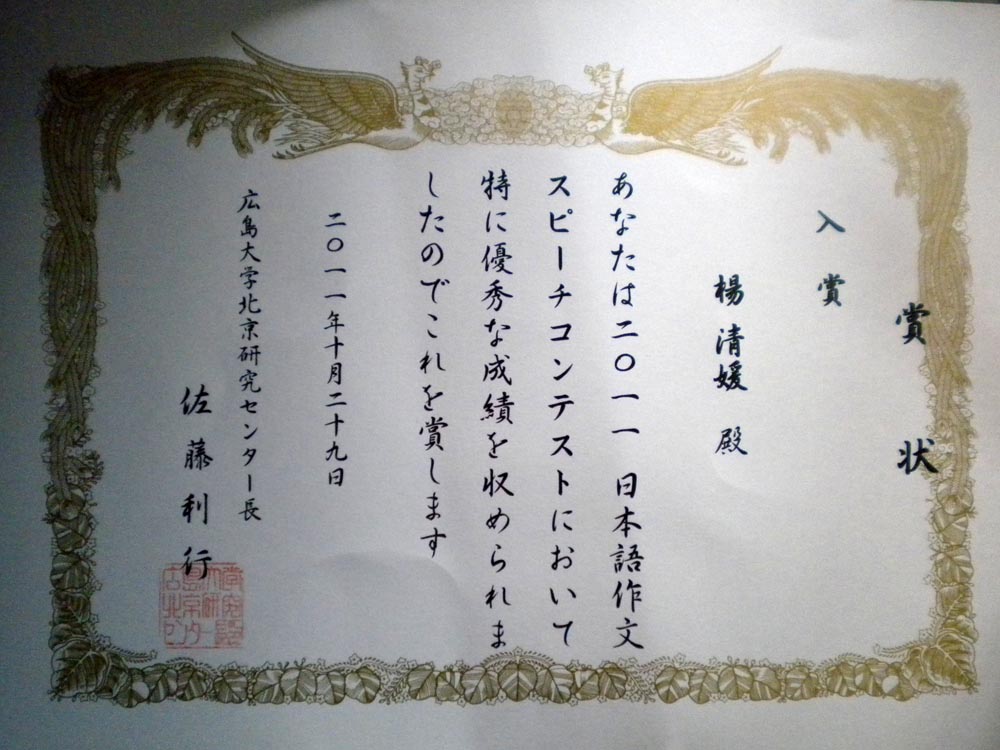 賞状
入賞
楊清媛 殿
あなたは二〇一一 日本語作文
スピーチコンテストにおいて
特に優秀な成績を収められま
したのでこれを賞します
二〇一一年十月二十九日
広島大学北京研究センター長
佐藤利行